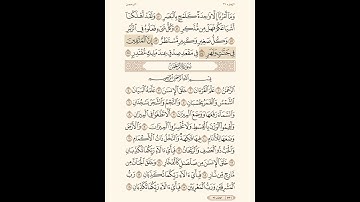 وَمَا أَمْرُنَا إِلَّا وَٰحِدَةٌ كَلَمْحٍۭ بِٱلْبَصَرِ ۝ وَلَقَدْ أَهْلَكْنَآ
أَشْيَاعَكُمْ فَهَلْ مِن مُّدَّكِرٍ ۝ وَكُلُّ شَىْءٍ فَعَلُوهُ فِى ٱلزُّبُرِ
۝ وَكُلُّ صَغِيرٍ وَكَبِيرٍ مُّسْتَطَرٌ ۝ إِنَّ ٱلْمُتَّقِينَ
فِى جَنَّٰتٍ وَنَهَرٍ ۝ فِى مَقْعَدِ صِدْقٍ عِندَ مَلِيكٍ مُّقْتَدِرٍۭ ۝
سُورَةُ الرَّحْمَٰن
بِسْمِ ٱللَّهِ ٱلرَّحْمَٰنِ ٱلرَّحِيمِ
ٱلرَّحْمَٰنُ ۝ عَلَّمَ ٱلْقُرْءَانَ ۝ خَلَقَ ٱلْإِنسَٰنَ ۝ عَلَّمَهُ ٱلْبَيَانَ
۝ ٱلشَّمْسُ وَٱلْقَمَرُ بِحُسْبَانٍ ۝ وَٱلنَّجْمُ وَٱلشَّجَرُ يَسْجُدَانِ
۝ وَٱلسَّمَآءَ رَفَعَهَا وَوَضَعَ ٱلْمِيزَانَ ۝ أَلَّا تَطْغَوْا۟ فِى ٱلْمِيزَانِ
۝ وَأَقِيمُوا۟ ٱلْوَزْنَ بِٱلْقِسْطِ وَلَا تُخْسِرُوا۟ ٱلْمِيزَانَ ۝
وَٱلْأَرْضَ وَضَعَهَا لِلْأَنَامِ ۝ فِيهَا فَٰكِهَةٌ وَٱلنَّخْلُ ذَاتُ ٱلْأَكْمَامِ ۝
وَٱلْحَبُّ ذُو ٱلْعَصْفِ وَٱلرَّيْحَانُ ۝ فَبِأَىِّ ءَالَآءِ رَبِّكُمَا تُكَذِّبَانِ
۝ خَلَقَ ٱلْإِنسَٰنَ مِن صَلْصَٰلٍ كَٱلْفَخَّارِ ۝ وَخَلَقَ ٱلْجَآنَّ
مِن مَّارِجٍ مِّن نَّارٍ ۝ فَبِأَىِّ ءَالَآءِ رَبِّكُمَا تُكَذِّبَانِ ۝
رَبُّ ٱلْمَشْرِقَيْنِ وَرَبُّ ٱلْمَغْرِبَيْنِ ۝ فَبِأَىِّ ءَالَآءِ رَبِّكُمَا تُكَذِّبَانِ ۝